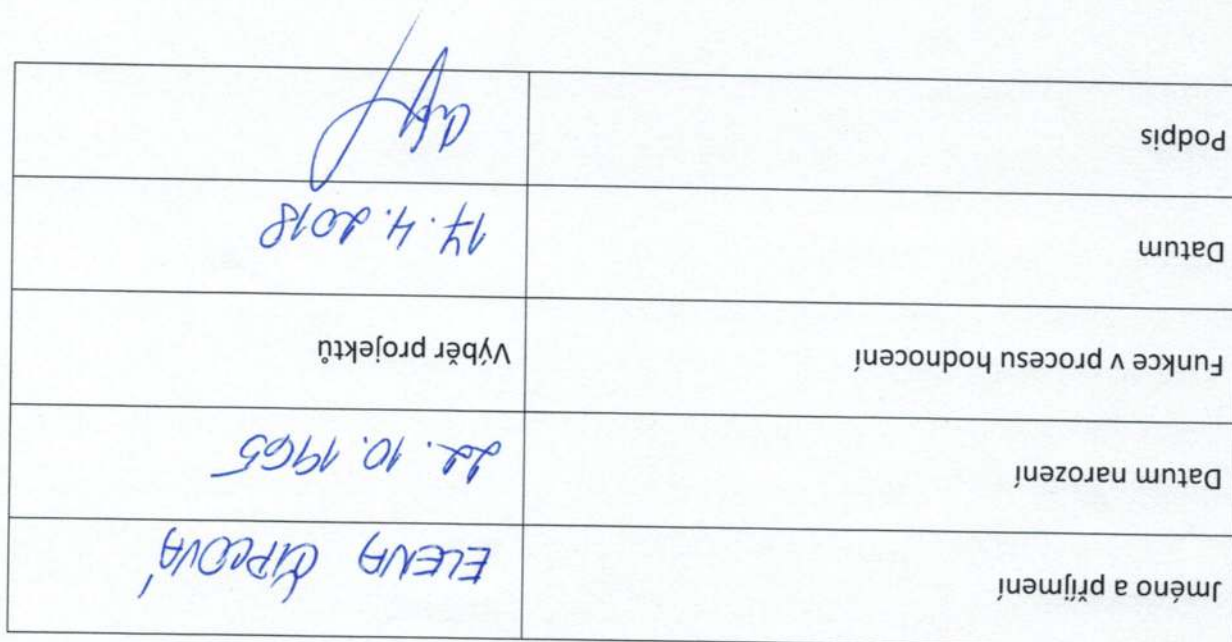 Jméno a příjmení ELENA ČIPCOVÁ
Datum narození 22. 10. 1965
Funkce v procesu hodnocení Výběr projektů
Datum 17. 4. 2018
Podpis